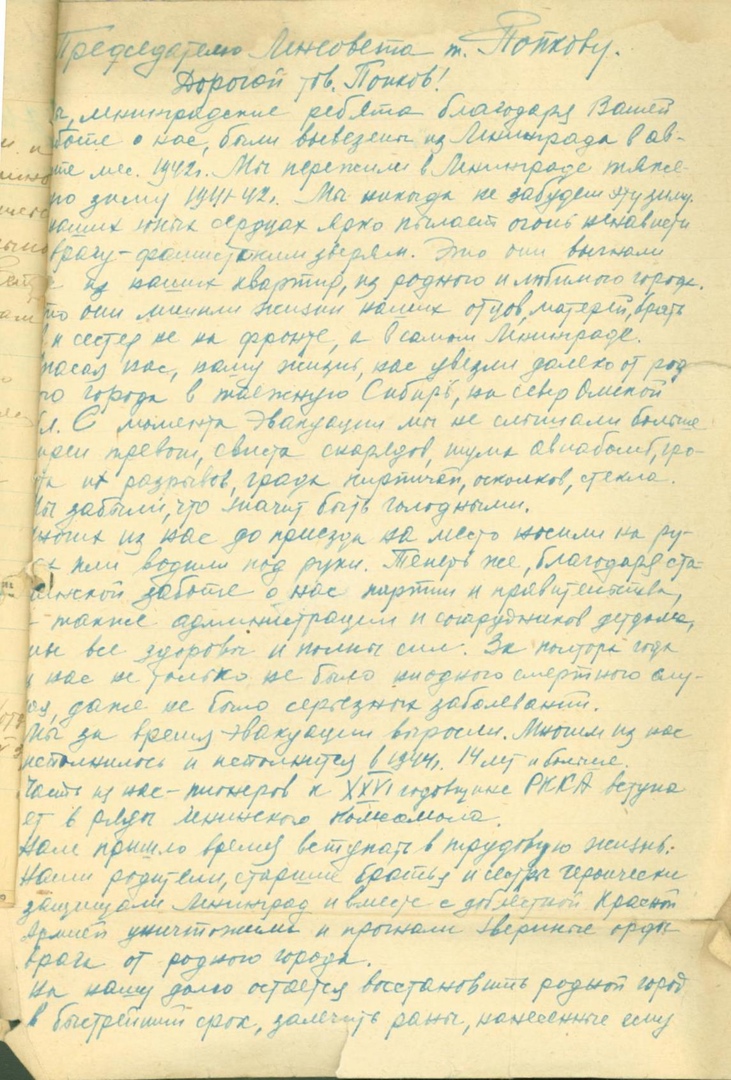 Председателю Ленсовета т. Попкову.
Дорогой тов. Попков!
ы, ленинградские ребята благодаря Вашей
боте о нас, были вывезены из Ленинграда в ав-
те мес. 1942г. Мы пережили в Ленинграде тяже-
ю зиму 1941-42г. Мы никогда не забудем эту зиму.
наших юных сердцах ярко пылает огонь ненависти
врагу-фашистским зверям. Это они выгнали
из наших квартир, из родного и любимого города.
то они лишили жизни наших отцов, матерей, брать
в и сестер не на фронте, а в самом Ленинграде.
пасая нас, нашу жизнь, нас увезли далеко от род
ого города в таежную Сибирь, на север Омской
л. С момента эвакуации мы не слышали больше
тревог, свиста снарядов, шума авиабомб, гро-
та их разрывов, града кирпичей, осколков, стекла.
Мы забыли, что значит быть голодными.
ногих из нас до приезда на место носили на ру-
х или водили под руки. Теперь же, благодаря ста-
инской заботе о нас партии и правительства,
также администрации и сотрудников детдома,
мы все здоровы и полны сил. За полтора года
у нас не только не было ниодного смертного слу-
ая, даже не было серьезных заболеваний.
Мы за время эвакуации выросли. Многим из нас
исполнилось и исполнится в 1944г. 14 лет и больше.
Часть из нас - пионеров к XXVI годовщине РККА вступа
ет в ряды ленинского комсомола.
Нам пришло время вступать в трудовую жизнь.
Наши родители, старшие братья и сестры героически
защищали Ленинград и вместе с доблестной Красной
Армией уничтожили и прогнали звериные орды
врага от родного города.
На нашу долю остается восстановить родной город
в быстрейший срок, залечить раны, нанесенные ему